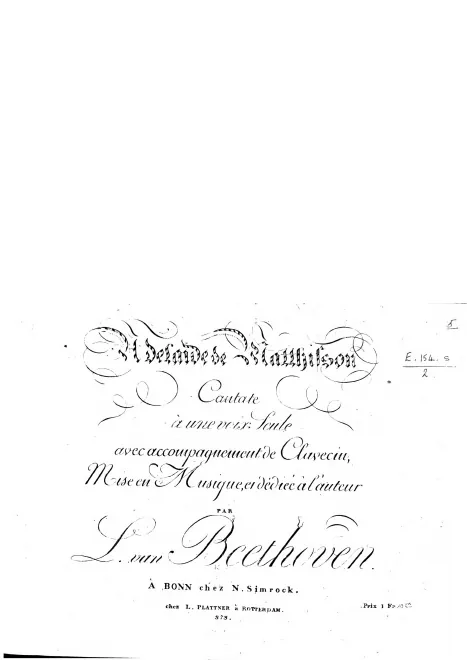 5
Adelaide de Matthisson
E. 154. s
2
Cantate
à une voix Seule
avec accompagnement de Clavecin,
Mise en Musique, et dédiée à l'auteur
PAR
L. van Beethoven.
À BONN chez N. Simrock.
chez L. PLATTNER à ROTTERDAM.
Prix 1 Fr